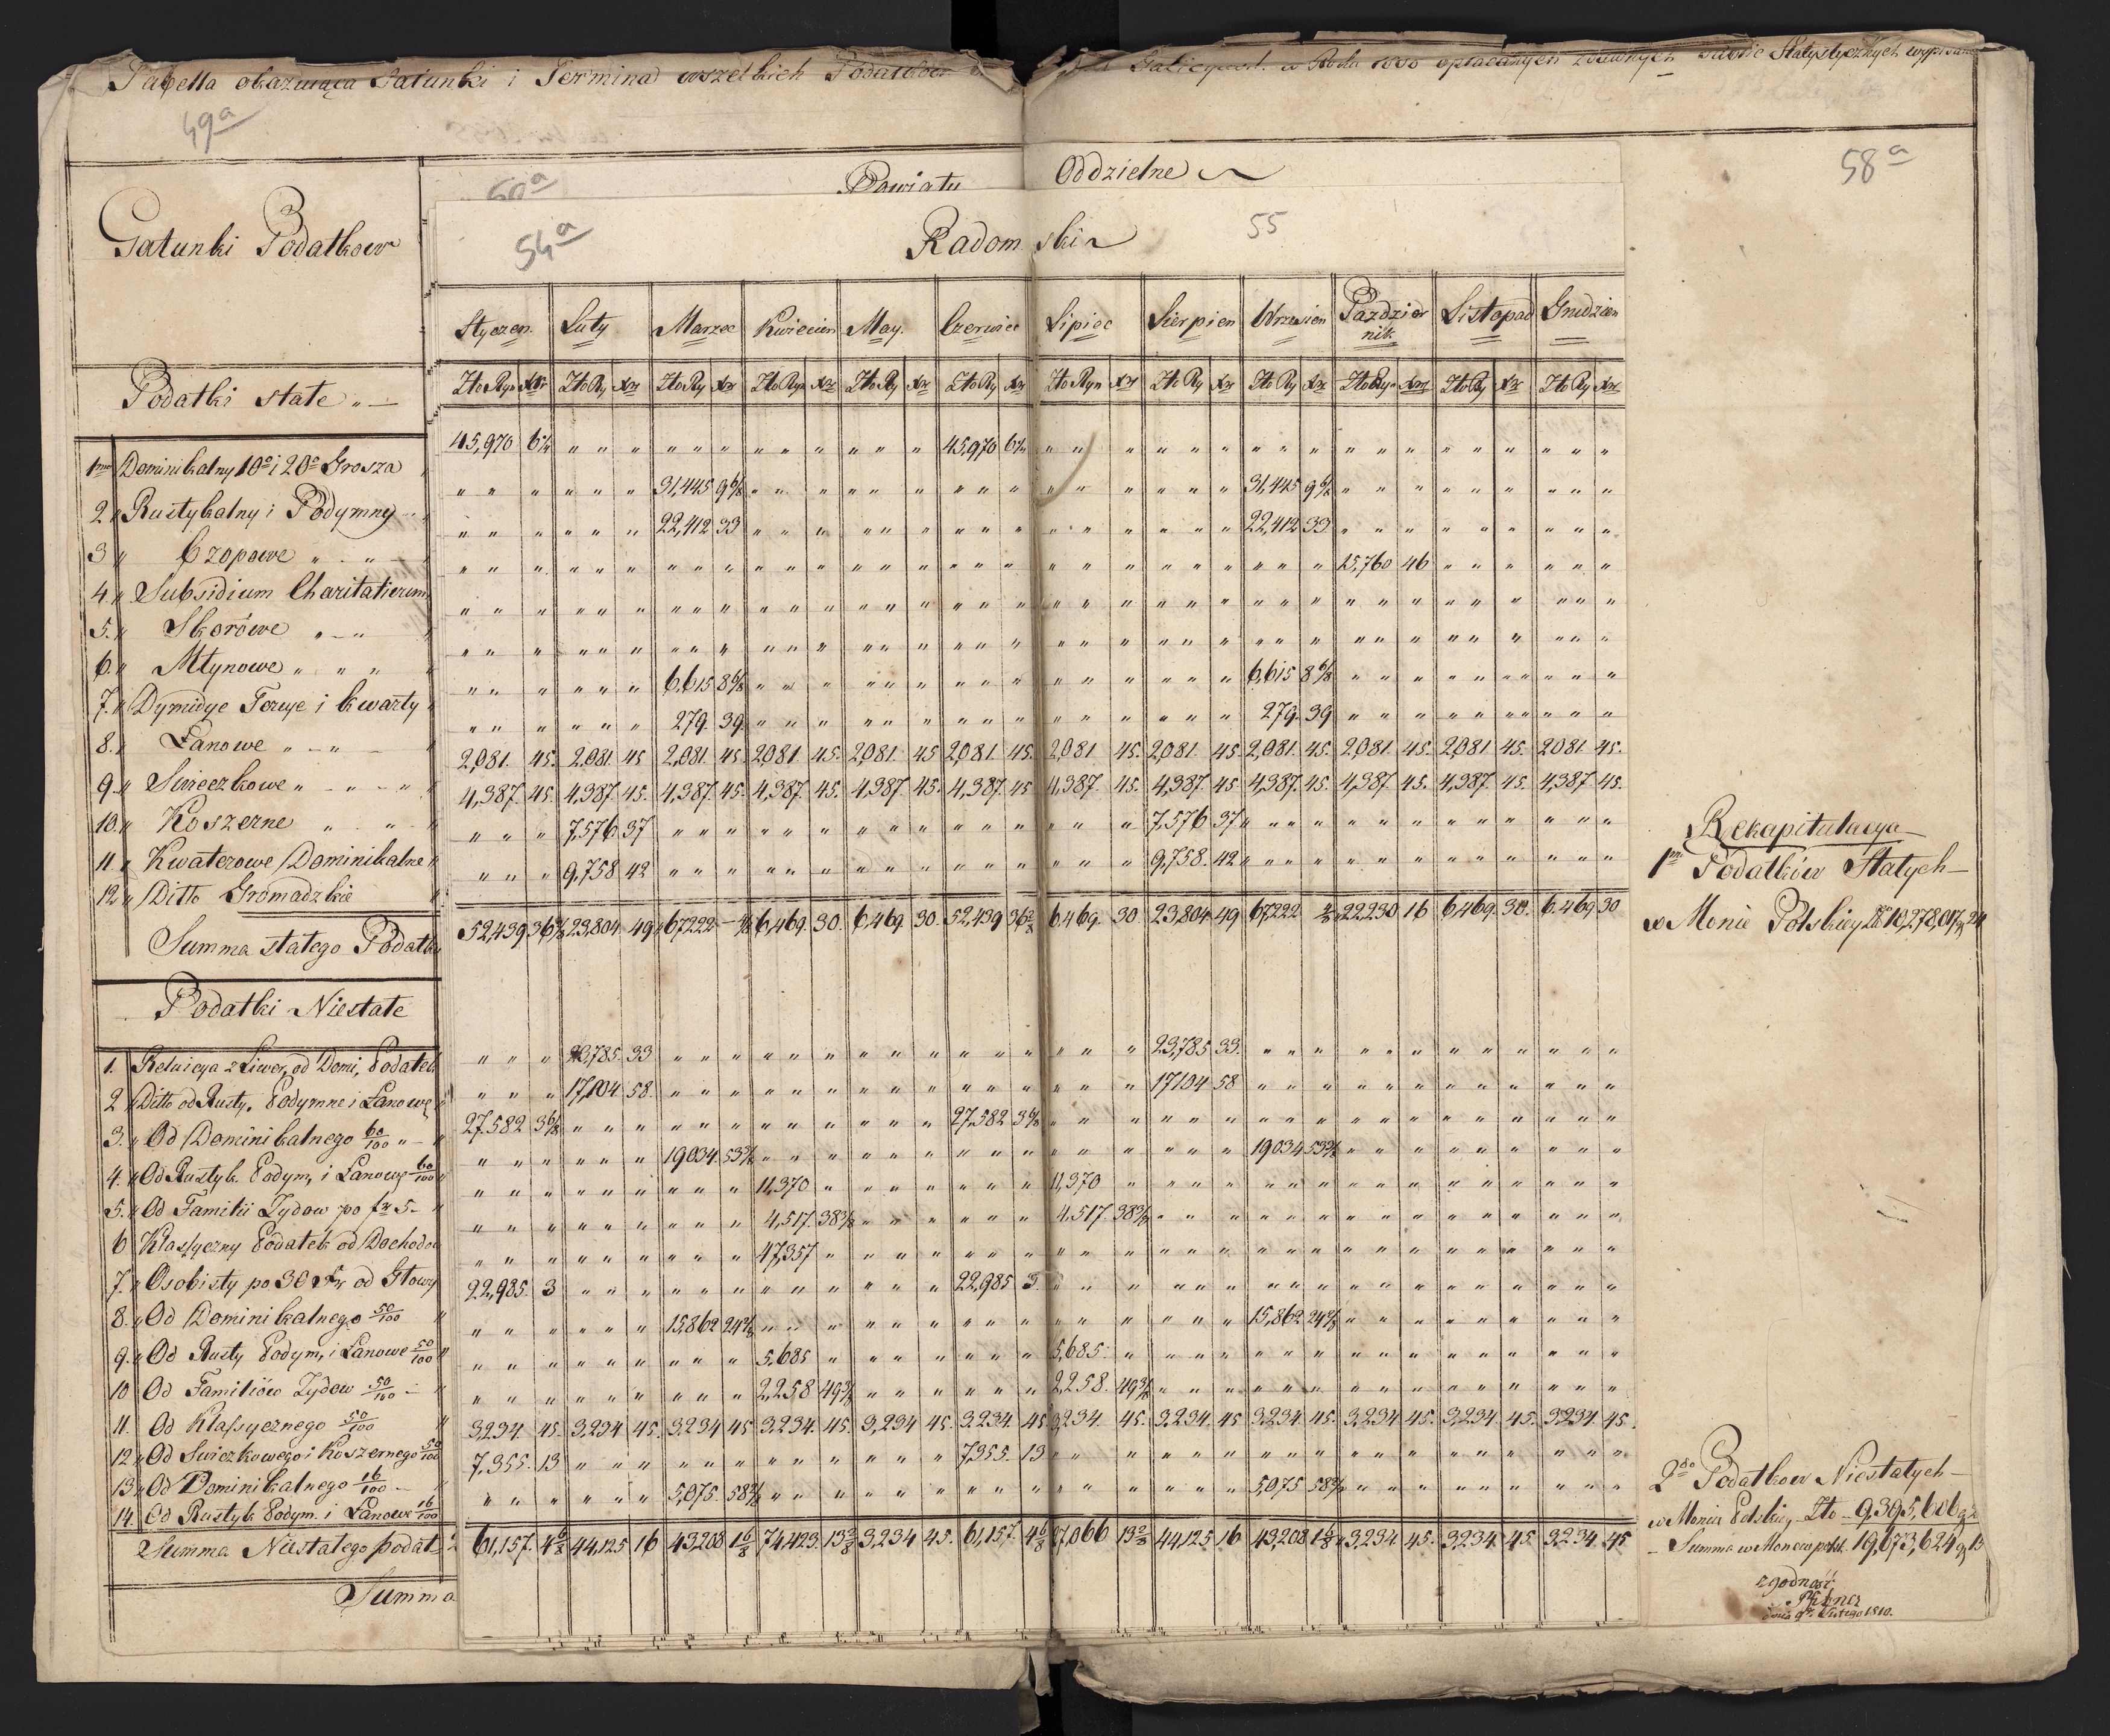 Tabella okazuiąca Gatunki i Termina wszelkich Podatkow
w Roku opłacanych Statystycznych wypisana
49a
58a
50a
Powiatu Oddzielne
54a
55
Radom ski
Gatunki Podatkow
Styczen. Luty Marzec Kwiecien May. Czerwiec Lipiec Sierpien Wrzesien Paździer nik. Listopad Grudzien
Zło Ryn Xr Zło Ry Xr Zło Ry Xr Zło Ryn Xr Zło Ry Xr Zło Ry Xr Zło Ryn Xr Zło Ry Xr Zło Ry Xr Zło Ryn Xr Zło Ry Xr Zło Ry Xr
Podatki stałe „ —
1mo Dominikalny 10o i 20o Grosza 45,970 6 2/8 45,970 6 2/8
2 „ Rustykalny i Podymny 31,445 9 6/8 31,445 9 6/8
3 „ Czopowe „ „ 22,412 33 22,412 33
4. „ Subsidium Charitativum 15,760 46
5. „ Skorowe „ — „
6. „ Młynowe „ „ „
7. „ Dymidye Tercye i kwarty 6,615 8 6/8 6,615 8 6/8
8. „ Łanowe „ — „ 279. 39 279. 39
9. „ Swieczkowe „ — „ 2,081. 45. 2,081 45 2,081 45 2,081 45. 2,081 45 2,081 45. 2,081 45. 2,081. 45 2,081 45. 2,081. 45. 2,081 45. 2081 45.
10. „ Koszerne „ „ 4,387 45. 4,387 45. 4,387 45. 4,387 45. 4,387 45. 4,387 45 4,387. 45. 4,387 45 4,387. 45. 4,387 45. 4,387 45. 4,387 45.
11 „ Kwaterowe Dominikalne 7,576 37 7,576 37
12 „ Ditto Gromadzkie 9,758 42 9,758. 42
Summa stałego Podatku 52,439 36 2/8 23,804 49 67222 — 4/8 6,469. 30. 6,469. 30. 52,439 36 2/8 6,469. 30 23,804 49 67222 4/8 22,230 16 6,469. 30. 6.469 30
Rekapitulacya
1mo Podatków Stałych —
w Monie Polskiey Złt 10,278,017 g 24
Podatki Niestałe
1. Reluicya z Liwer, od Domi, Podatek 23,785. 33 23,785 33.
2 Ditto od Rusty. Podymne i Łanowe 17,104 58. 17104 58
3. „ Od Dominikalnego 60/100 „ — 27.582 3 6/8 27,582 3 6/8
4. „ Od Rustyk. Podym, i Łanowe 60/100 19,034. 53 2/8 19,034 53 2/8
5. „ Od Familii Zydow po fr 5 — 11,370 11,370
6 Klassyczny Podatek od Dochodow 4,517. 38 3/8 4,517. 38 3/8
7. „ Osobisty po 30 Xr od Głowy 47,357
8. „ Od Dominikalnego 50/100 22,985. 3 22,985 3.
9. „ Od Rusty Podym, i Łanowe 50/100 15,862 24 2/8 15,862 24 2/8
10 Od Familiów Zydow 50/100 — 5,685 5,685.
11. Od Klassycznego 50/100 2,258 49 3/8 2,258. 49 3/8
12 „ Od Swiczkowego i Koszernego 50/100 3,234. 45. 3,234 45. 3,234 45 3,234. 45. 3,234 45. 3.234. 45 3,234. 45. 3,234. 45 3,234. 45. 3,234 45. 3,234. 45. 3,234. 45.
13 „ Od Dominikalnego 16/100 — 7,355. 13 7,355. 13
14 Od Rustyk Podym. i Łanowe 16/100 5,075. 58 2/8 5,075 58 2/8
Summa Niestałego podat 61,157. 4 6/8 44,125 16 43,208 1 6/8 74,423. 13 3/8 3,234 45. 61,157. 4 6/8 27,066 13 3/8 44,125 16 43,208 1 6/8 3,234 45. 3,234. 45. 3,234. 45
2do Podatkow Niestałych —
w Monie Polskiey Zło — 9,395,606 g
— Summa w Monew polsk. 19,673,624 g 13
Summa
zgodność
dnia 9go Lutego 1810.